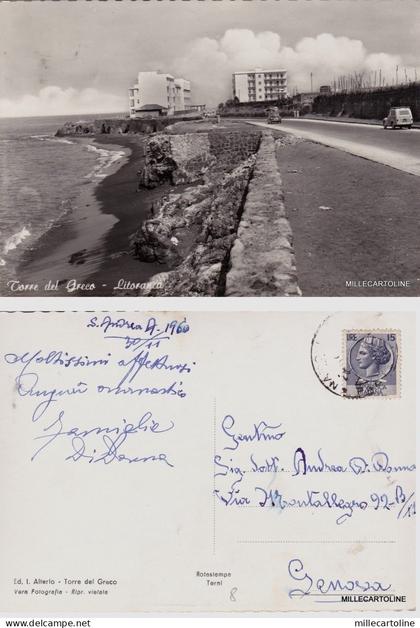 Torre del Greco - Litoranea
MILLECARTOLINE
S. Andrea A. 1960
30/11
Moltissimi affettuosi
Auguri onomastico
Famiglia
Di Donna
LIRE 15
NA
Gentmo
Sig. dott. Andrea Di Donna
Via Montallegro 92-B/11
Genova
Ed. I. Alterio - Torre del Greco
Vera Fotografia - Ripr. vietata
Rotostampa
Terni
8
MILLECARTOLINE